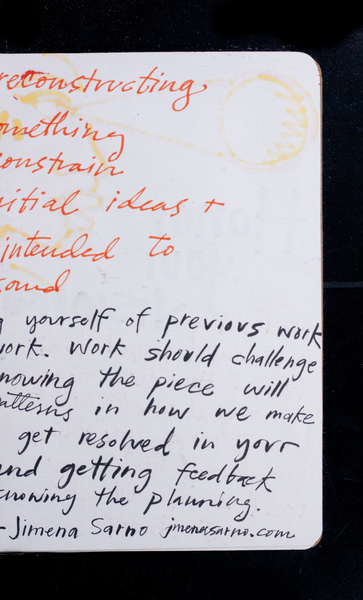 reconstructing
omething
onstrain
nitial ideas +
intended to
sound
g yourself of previous work
work. Work should challenge
nowing the piece will
patterns in how we make
get resolved in your
and getting feedback
knowing the planning.
- Jimena Sarno jimenasarno.com